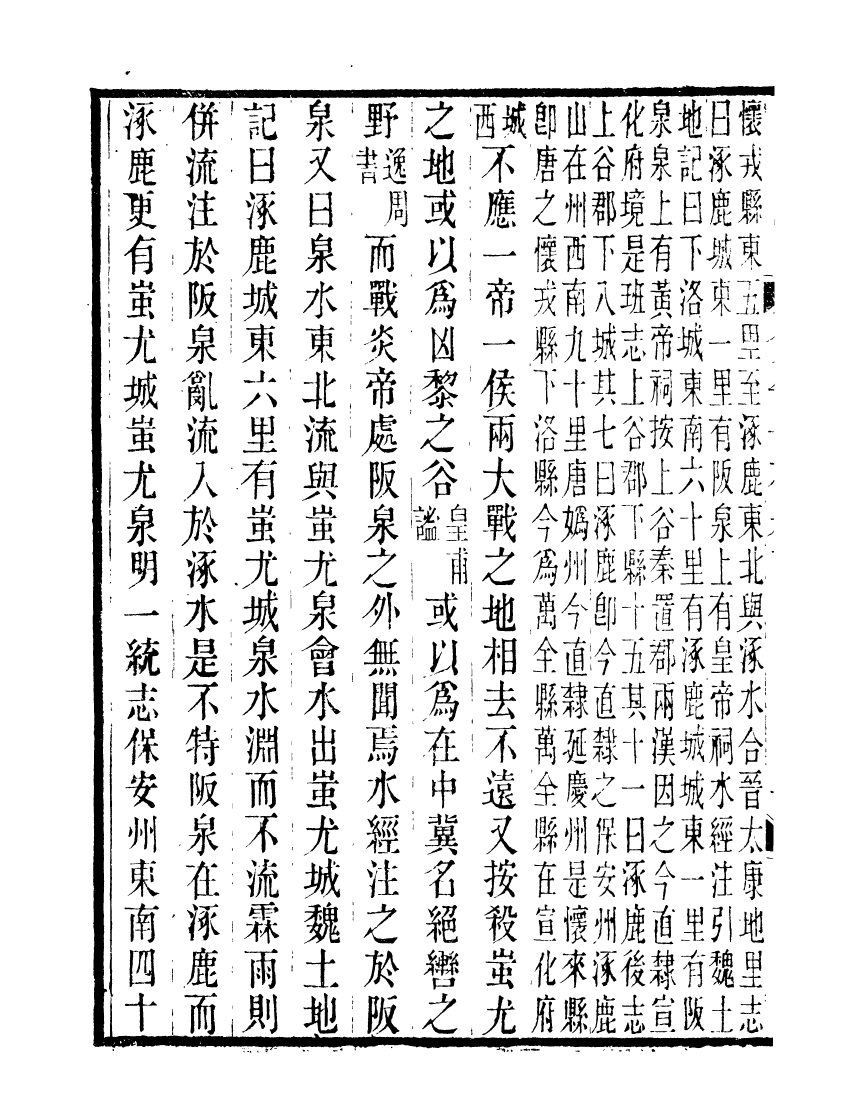 懷戎縣東五里至涿鹿東北與涿水合晉太康地里志
曰涿鹿城東一里有阪泉上有皇帝祠水經注引魏土
地記曰下洛城東南六十里有涿鹿城城東一里有阪
泉泉上有黃帝祠按上谷秦置郡兩漢因之今直隸宣
化府境是班志上谷郡下縣十五其十一曰涿鹿後志
上谷郡下八城其七曰涿鹿卽今直隸之保安州涿鹿
山在州西南九十里唐嬀州今直隸延慶州是懷來縣
卽唐之懷戎縣下洛縣今爲萬全縣萬全縣在宣化府
城西不應一帝一侯兩大戰之地相去不遠又按殺蚩尤
之地或以爲凶黎之谷皇甫謐或以爲在中冀名絕轡之
野逸周書而戰炎帝處阪泉之外無聞焉水經注之於阪
泉又曰泉水東北流與蚩尤泉會水出蚩尤城魏土地
記曰涿鹿城東六里有蚩尤城泉水淵而不流霖雨則
併流注於阪泉亂流入於涿水是不特阪泉在涿鹿而
涿鹿更有蚩尤城蚩尤泉明一統志保安州東南四十